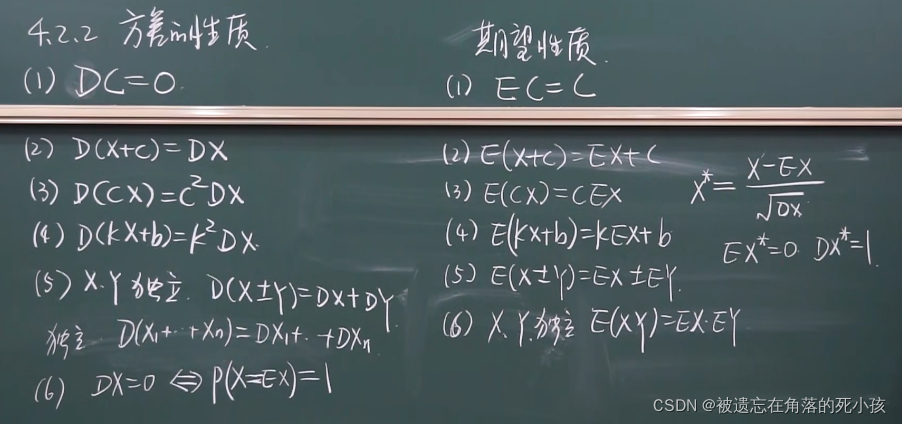 4.2.2 方差的性质.
(1) DC=0.
(2) D(X+C)=DX
(3) D(CX)=C²DX
(4) D(kX+b)=k²DX.
(5) X.Y独立. D(X±Y)=DX+DY.
独立. D(X₁+…+Xₙ)=DX₁+…+DXₙ
(6) DX=0 ⇔ P(X=EX)=1
期望性质.
(1) EC=C
(2) E(X+C)=EX+C
(3) E(CX)=CEX
(4) E(kX+b)=kEX+b
(5) E(X±Y)=EX±EY.
(6) X.Y.独立 E(XY)=EX·EY
X*=(X-EX)/√DX
EX*=0. DX*=1.
CSDN @被遗忘在角落的死小孩